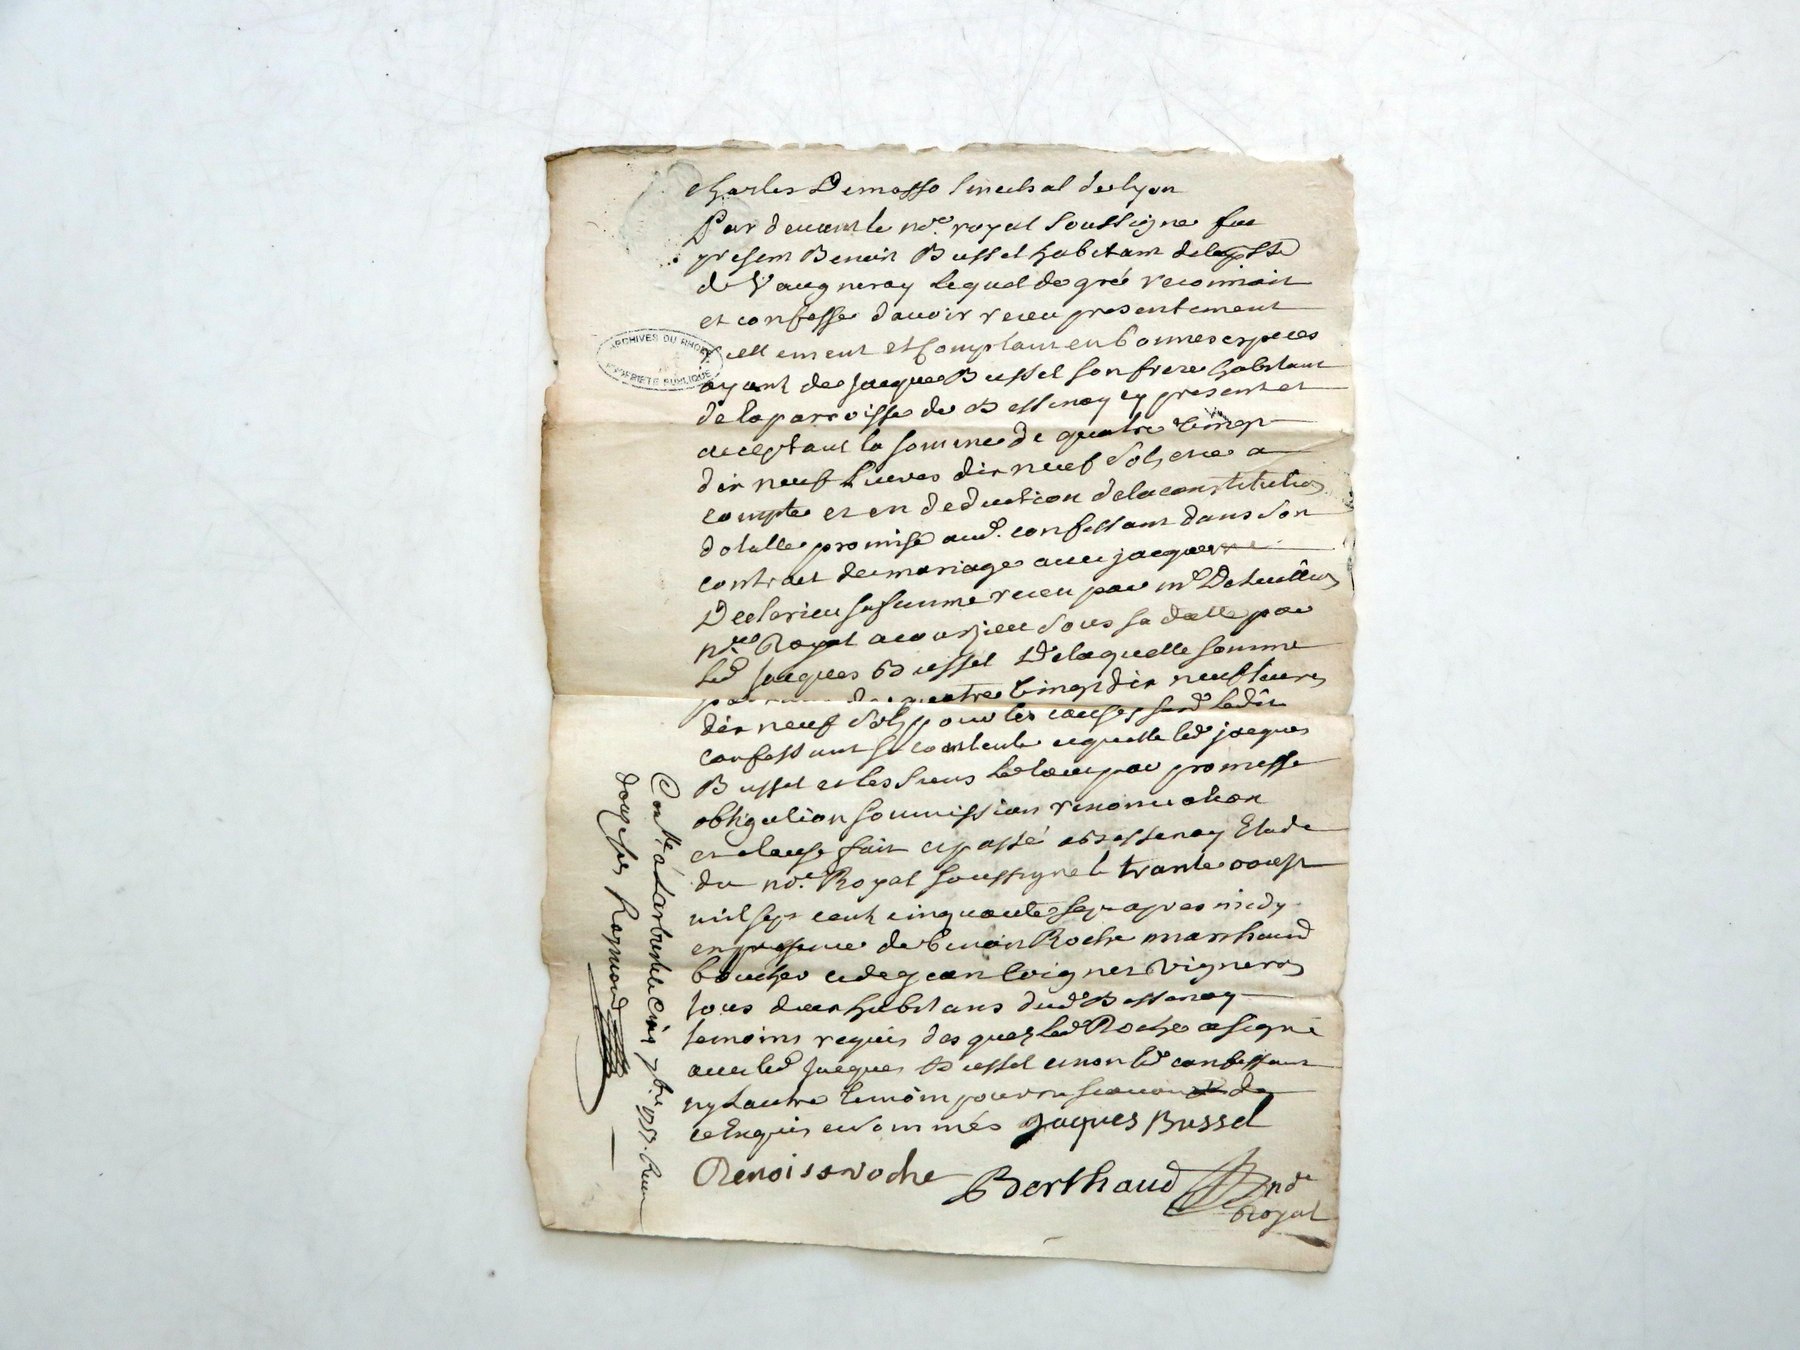 Charles Demasso Senechal de Lyon
Par devant le nre. royal soussigné fut
present Benoit Bussel habitant de la psse
de Vaugneray Lequel de gré reconnoit
et confesse davoir receu presentement
reellement et Comptant en bonnes especes
ayant de Jacques Bussel son frere habitant
de la parroisse de Bessenay cy present et
acceptant la somme de quatre vingt
dix neuf Livres dix neuf sols et ce a
compte et en deduction de la constitution
dotalle promise aud. confessant dans son
contract de mariage avec jacquem
sa femme receu par me
nre Royal a courzieu sous sa datte par
led Jacques Bussel De laquelle somme
quatre vingt dix neuf livres
dix neuf sols pour les causes susd. ledit
confessant se contente et quitte led jacques
Bussel et les siens par promesse
obligation soumission renonciation
et clause fait et passé a Bessenay Etude
du nre. Royal soussigné le trante aoust
mil sept cent cinquante sept apres midy
en presence de benoit Roche marchand
boucher et de jean vigneron
tous deux habitans dud. Bessenay
temoins requis des quels led Roche a signé
avec led Jacques Bussel et non led confessant
ny Lautre temoin pour ne scavoir de
ce Enquis et sommés Jaques Bussel
Benois roche Berthaud nre
Royal
Conllé a Larbresle le Cinq 7bre 1757. Receu
douze sols Raymond
ARCHIVES DU RHONE
PROPRIETE PUBLIQUE